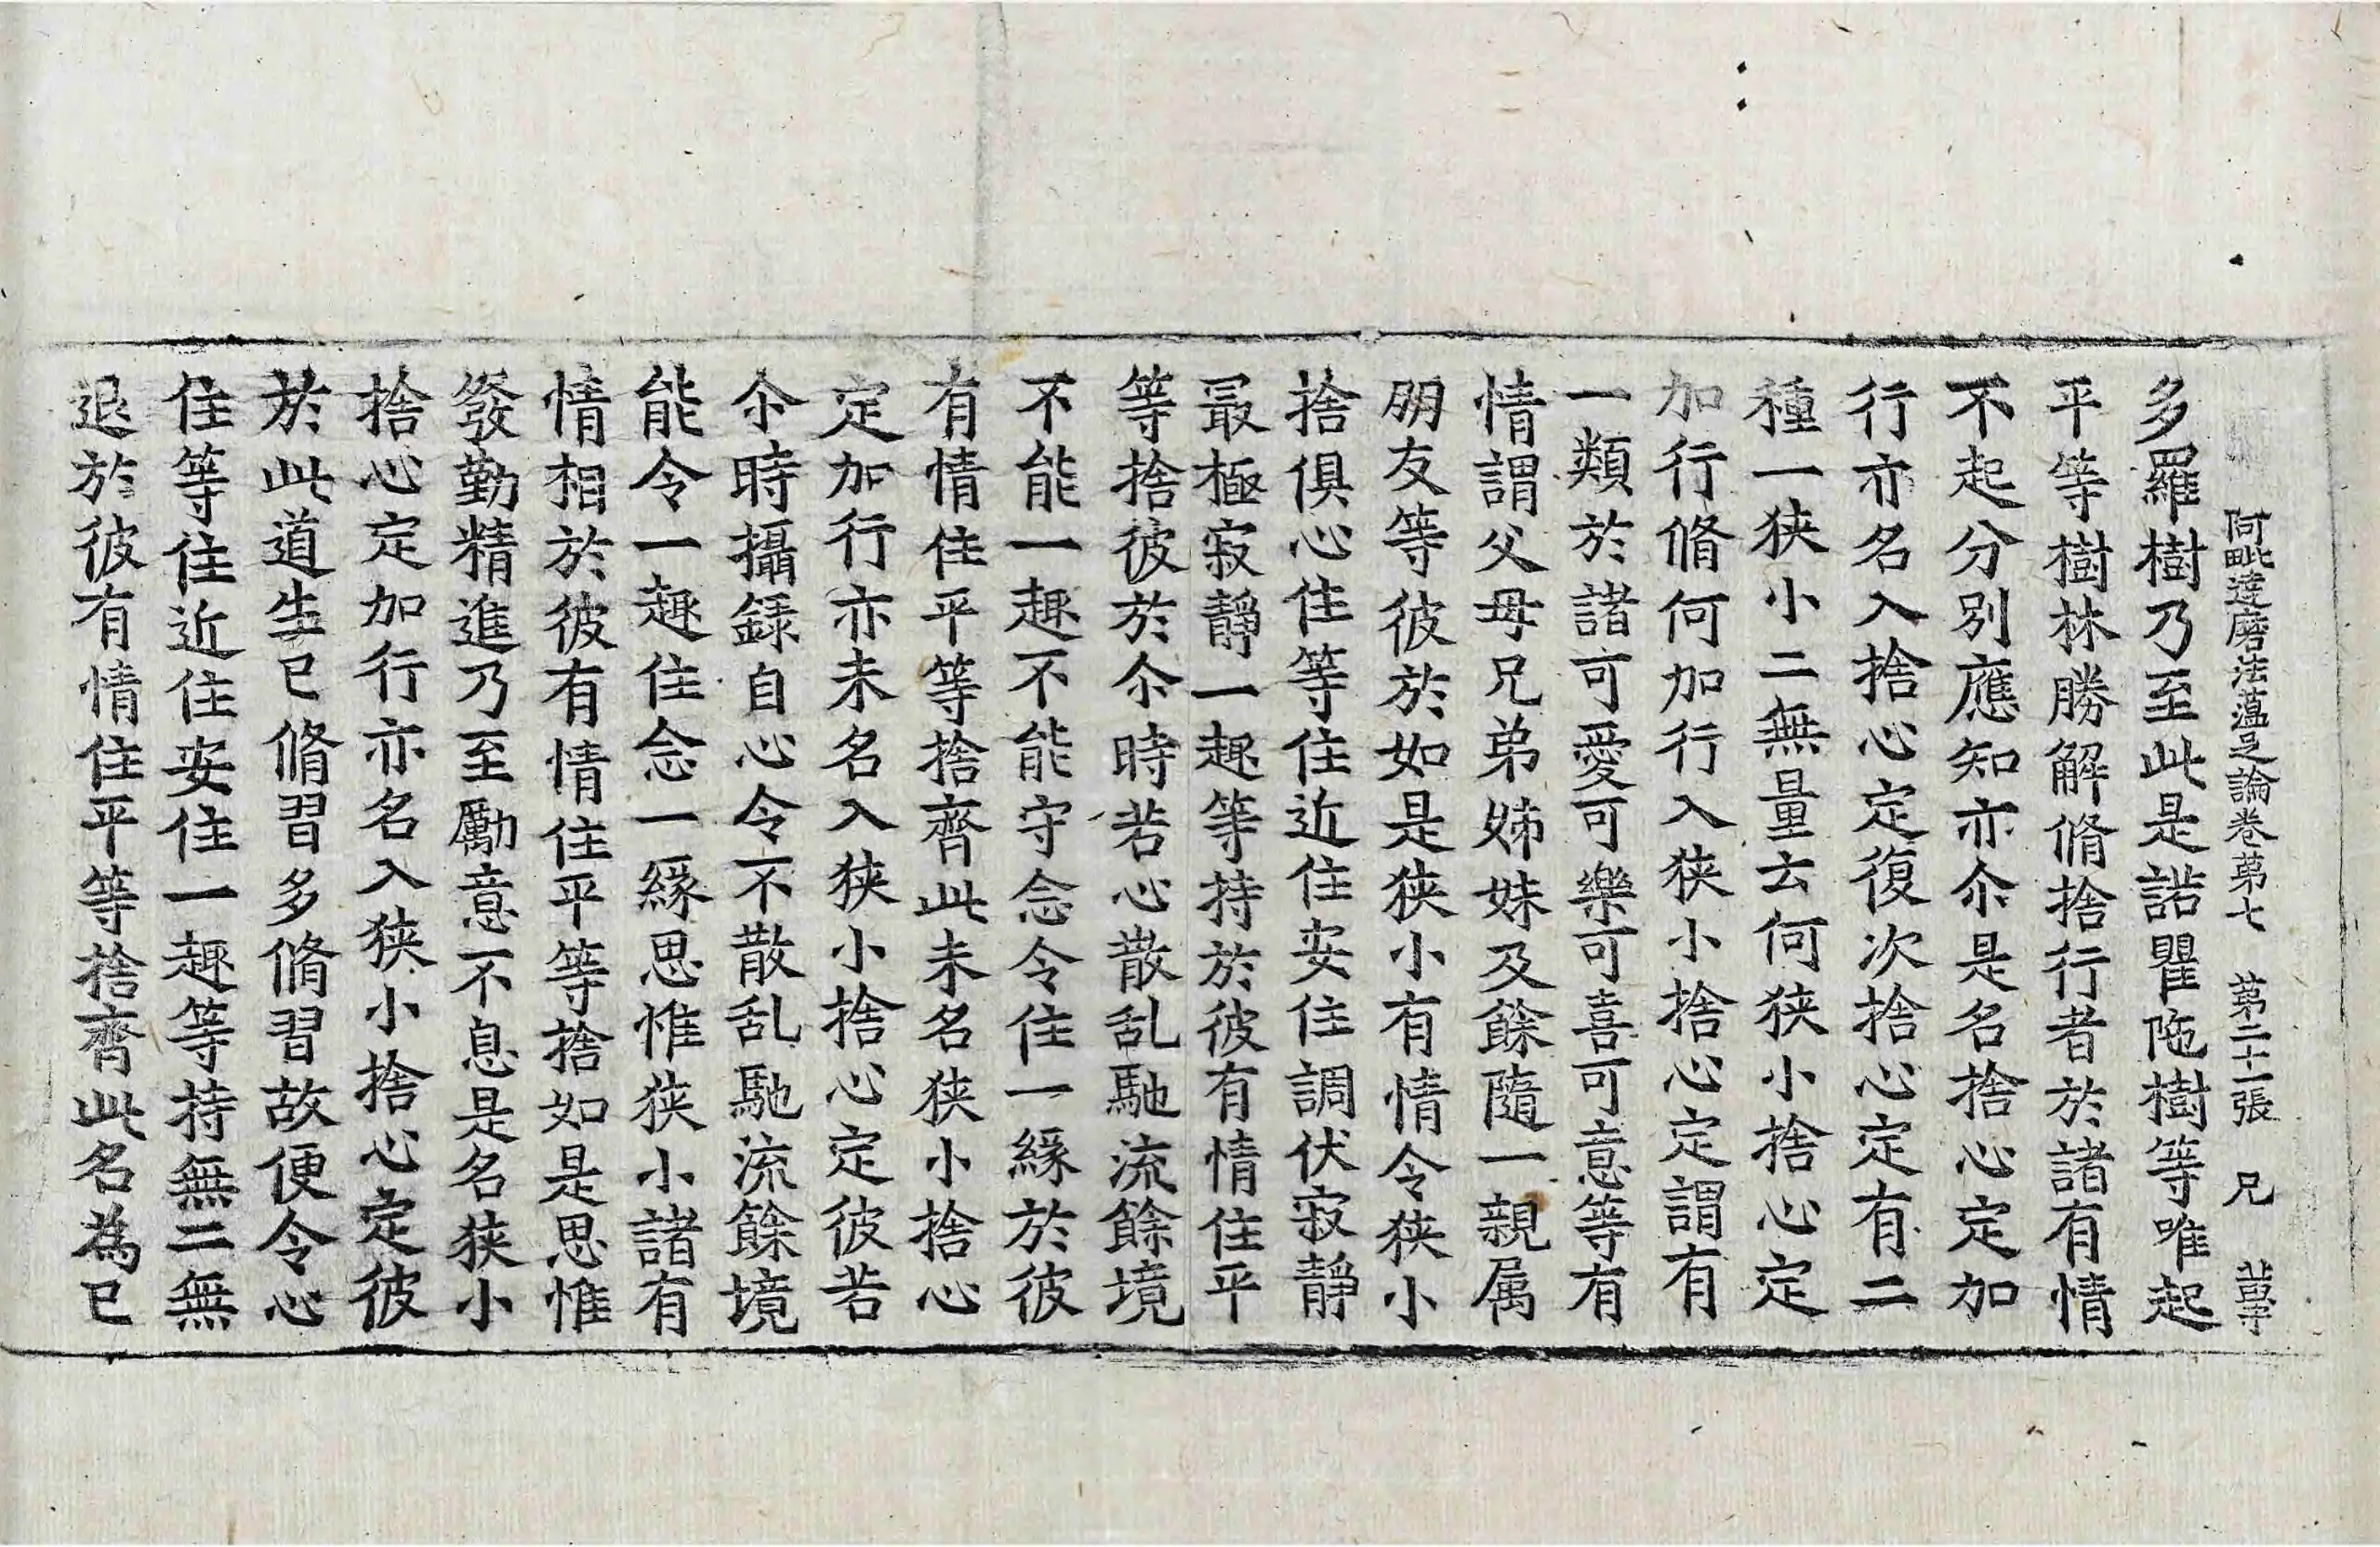 阿毗達磨法蕴足論卷苐七　苐二十一張　兄
多羅樹乃至此是諾瞿陁樹等唯起
平等樹林勝解脩捨行者於諸有情
不起分別應知亦尒是名捨心定加
行亦名入捨心定復次捨心定有二
種一狭小二無量云何狭小捨心定
加行脩何加行入狭小捨心定謂有
一類於諸可愛可樂可喜可意等有
情謂父母兄弟姊妹及餘隨一親属
朋友等彼於如是狭小有情令狭小
捨俱心住等住近住安住調伏寂靜
最極寂靜一趣等持於彼有情住平
等捨彼於尒時若心散乱馳流餘境
不能一趣不能守念令住一緣於彼
有情住平等捨齊此未名狭小捨心
定加行亦未名入狭小捨心定彼若
尒時攝録自心令不散乱馳流餘境
能令一趣住念一緣思惟狭小諸有
情相於彼有情住平等捨如是思惟
發勤精進乃至勵意不息是名狭小
捨心定加行亦名入狭小捨心定彼
於此道生已脩習多脩習故便令心
住等住近住安住一趣等持無二無
退於彼有情住平等捨齊此名為已